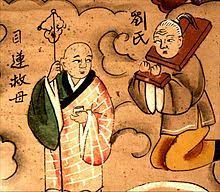 目連救母
劉氏